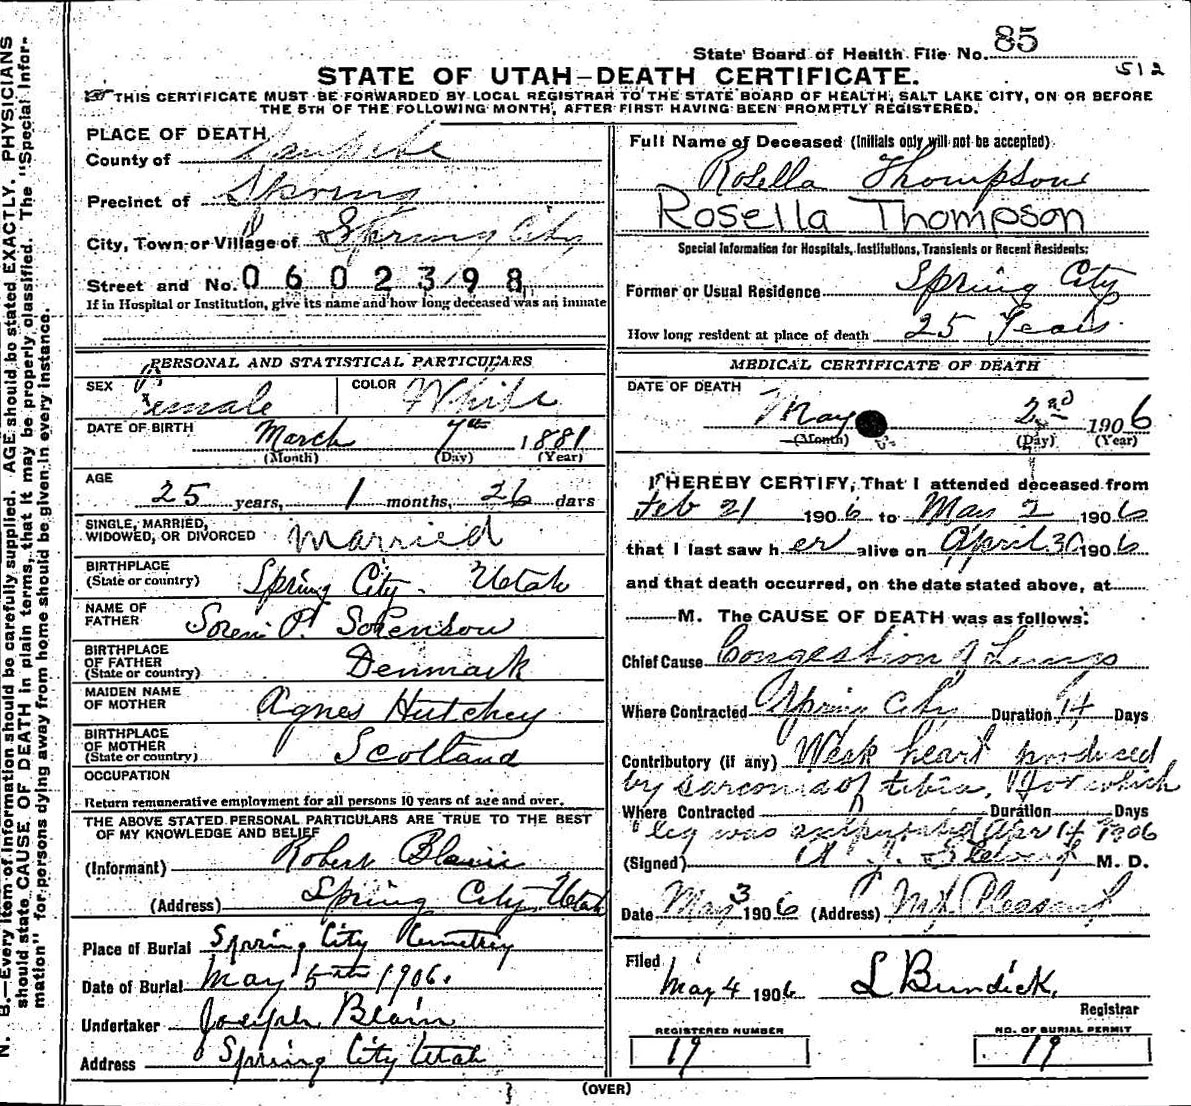 State Board of Health File No. 85
512
STATE OF UTAH—DEATH CERTIFICATE.
THIS CERTIFICATE MUST BE FORWARDED BY LOCAL REGISTRAR TO THE STATE BOARD OF HEALTH, SALT LAKE CITY, ON OR BEFORE
THE 5TH OF THE FOLLOWING MONTH, AFTER FIRST HAVING BEEN PROMPTLY REGISTERED.
N. B.—Every item of information should be carefully supplied. AGE should be stated EXACTLY. PHYSICIANS
should state CAUSE OF DEATH in plain terms, that it may be properly classified. The "Special Infor-
mation" for persons dying away from home should be given in every instance.
PLACE OF DEATH
County of Sanpete
Precinct of Spring
City, Town or Village of Spring City
Street and No. 0602398
If in Hospital or Institution, give its name and how long deceased was an inmate
PERSONAL AND STATISTICAL PARTICULARS
SEX Female COLOR White
DATE OF BIRTH March 7th 1881
(Month) (Day) (Year)
AGE
25 years, 1 months, 26 days
SINGLE, MARRIED,
WIDOWED, OR DIVORCED Married
BIRTHPLACE
(State or country) Spring City. Utah
NAME OF
FATHER Soren P. Sorenson
BIRTHPLACE
OF FATHER
(State or country) Denmark
MAIDEN NAME
OF MOTHER Agnes Hutchey
BIRTHPLACE
OF MOTHER
(State or country) Scotland
OCCUPATION
Return remunerative employment for all persons 10 years of age and over.
THE ABOVE STATED PERSONAL PARTICULARS ARE TRUE TO THE BEST
OF MY KNOWLEDGE AND BELIEF
(Informant) Robert Blain
(Address) Spring City, Utah
Place of Burial Spring City Cemetery
Date of Burial May 5th 1906.
Undertaker Joseph Blain
Address Spring City Utah
Full Name of Deceased (Initials only will not be accepted)
Rosella Thompson
Rosella Thompson
Special Information for Hospitals, Institutions, Transients or Recent Residents:
Former or Usual Residence Spring City
How long resident at place of death 25 Years
MEDICAL CERTIFICATE OF DEATH
DATE OF DEATH
May 2nd 1906
(Month) (Day) (Year)
I HEREBY CERTIFY, That I attended deceased from
Feb 21 1906 to May 2 1906
that I last saw her alive on April 30 1906
and that death occurred, on the date stated above, at
M. The CAUSE OF DEATH was as follows:
Chief Cause Congestion of Lungs
Where Contracted Spring City Duration 14 Days
Contributory (if any) Weak heart produced
by sarcoma of tibia, for which
Where Contracted Duration Days
leg was amputated Apr 14 1906
(Signed) M. D.
Date May 3 1906 (Address) Mt. Pleasant
Filed
May 4 1906 L Bundick,
Registrar
REGISTERED NUMBER
19
NO. OF BURIAL PERMIT
19
(OVER)